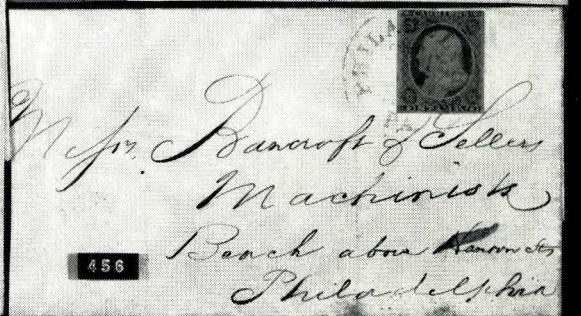 PHILA
PA
Messrs. Bancroft & Sellers
Machinists
Beach above Hanover St
Philadelphia
456